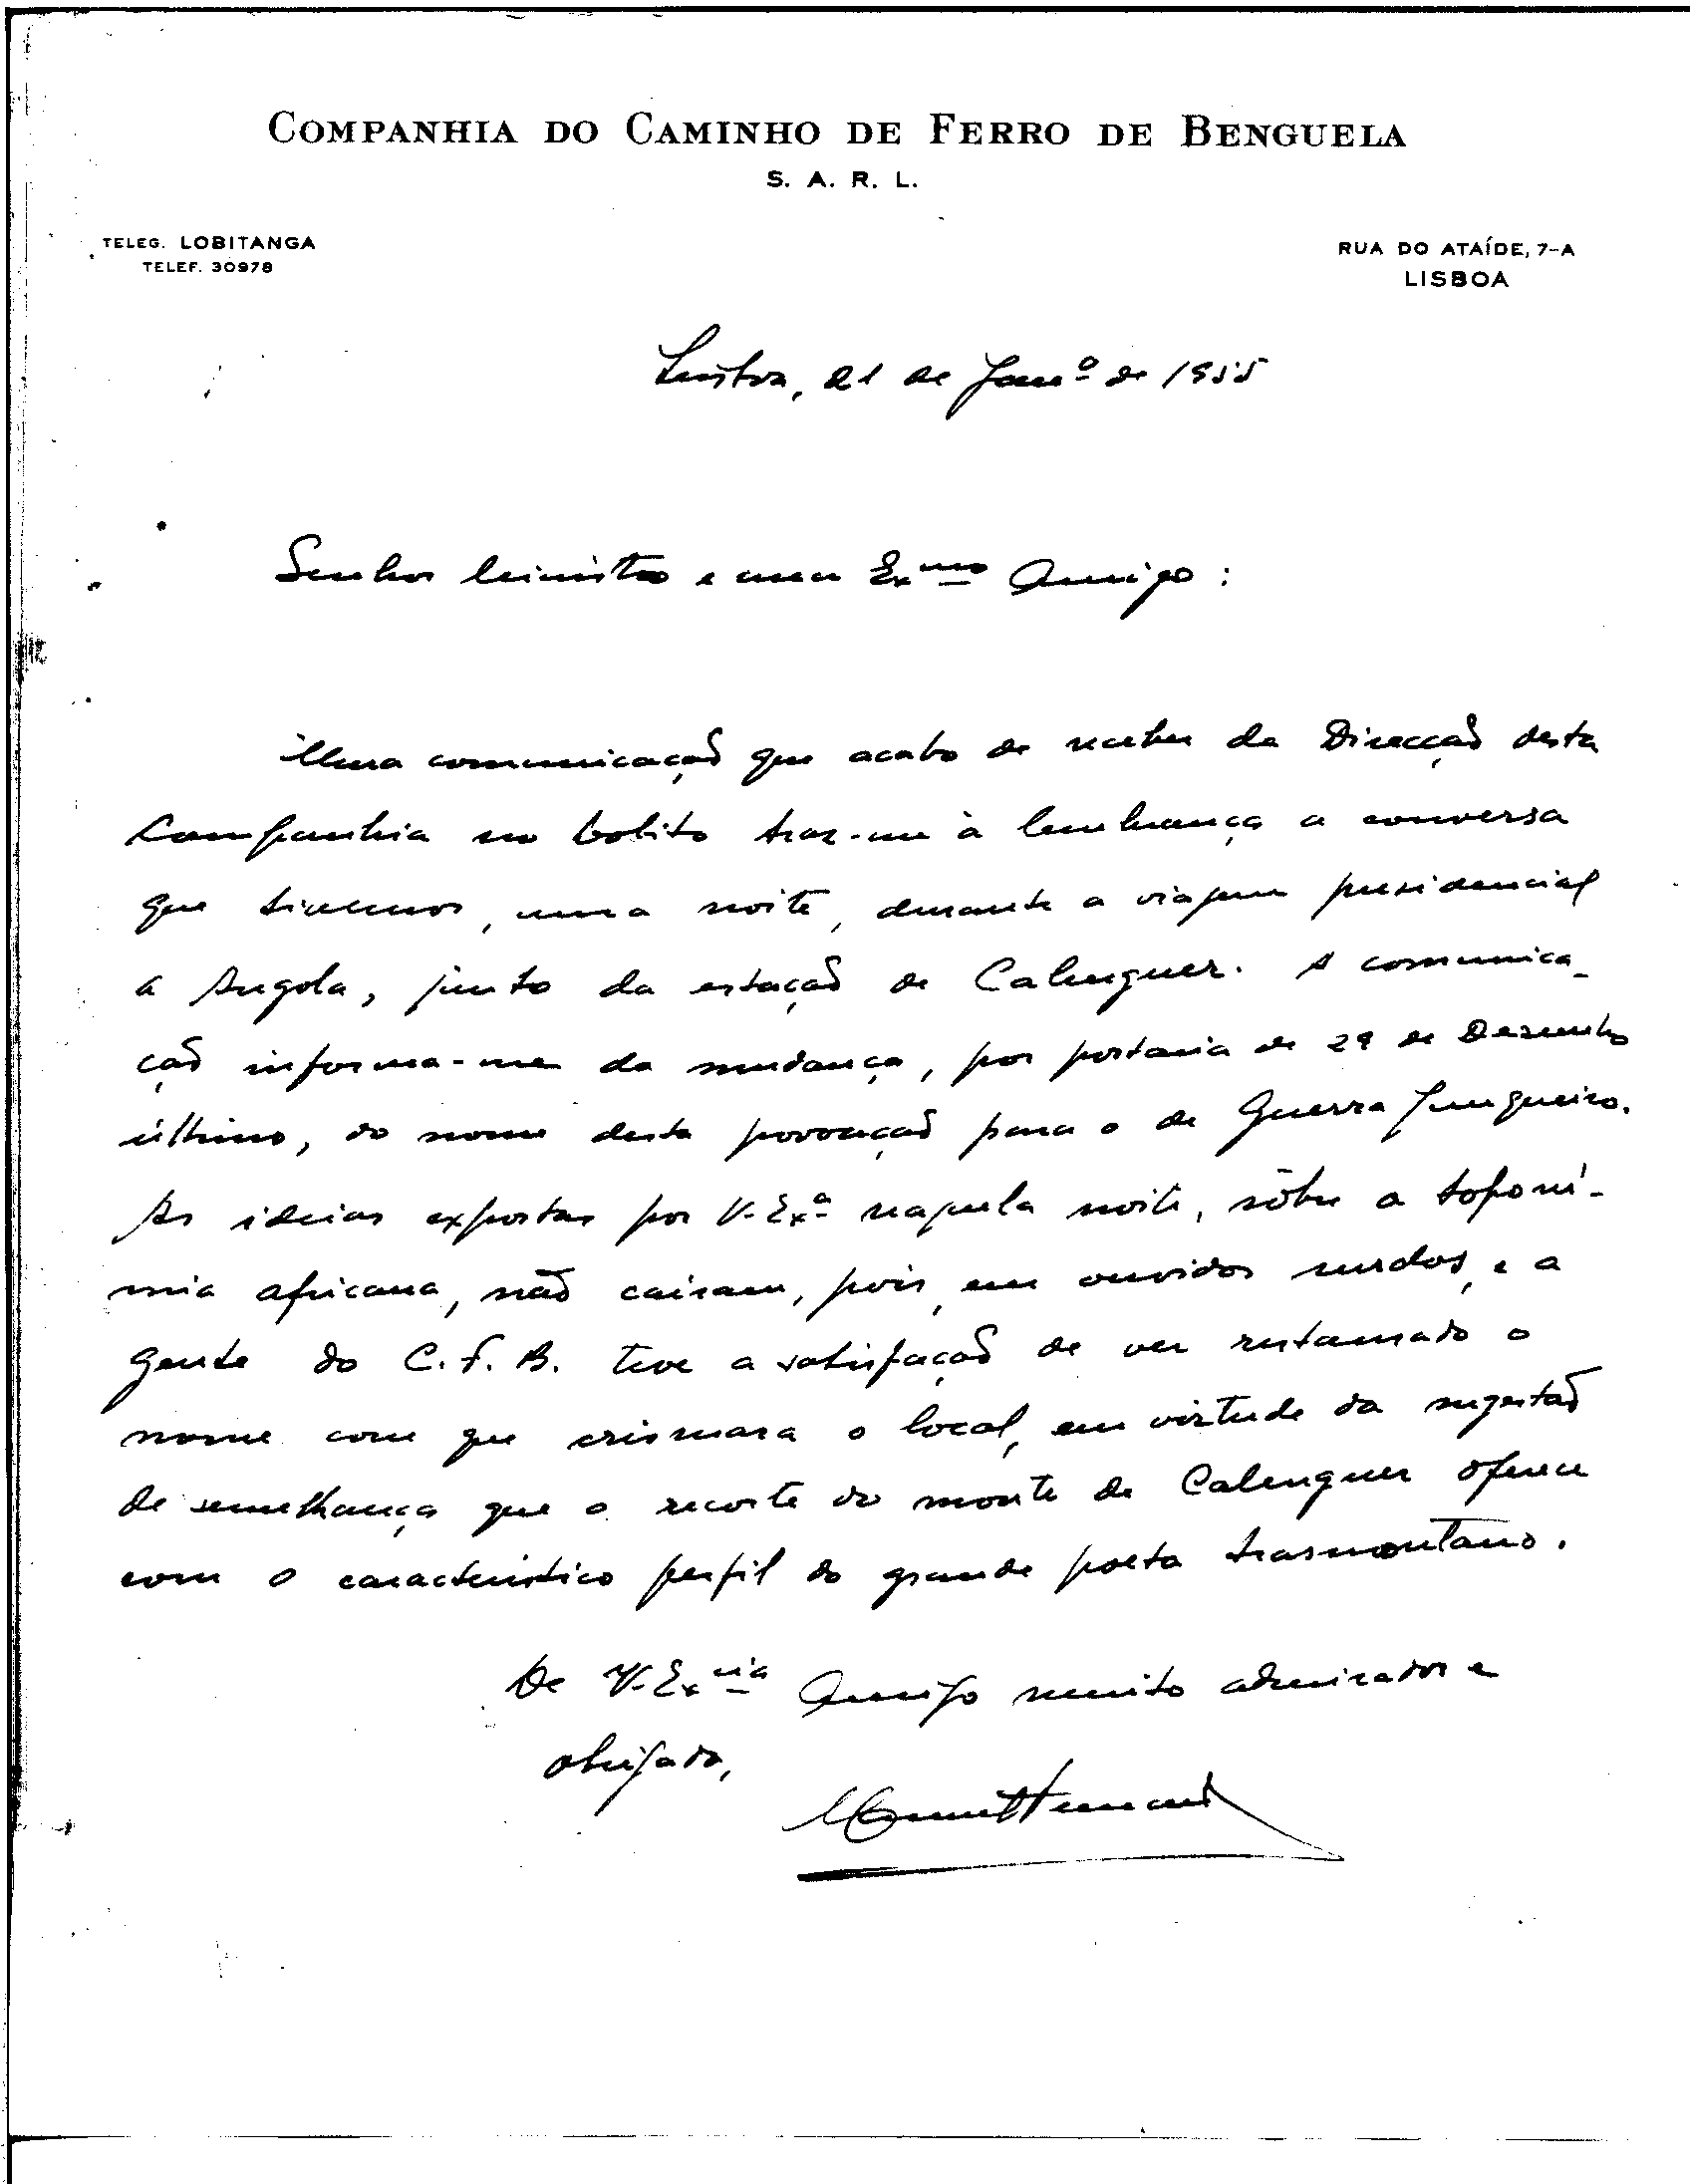 COMPANHIA DO CAMINHO DE FERRO DE BENGUELA
S. A. R. L.
TELEG. LOBITANGA
TELEF. 30978
RUA DO ATAÍDE, 7-A
LISBOA
Lisboa, 21 de Janº de 1955
Senhor Ministro e meu Exmo Amigo:
Uma comunicação que acabo de receber da Direcção desta
Companhia no Lobito traz-me à lembrança a conversa
que tivemos, uma noite, durante a viagem presidencial
a Angola, junto da estação de Calenguer. A comunica-
ção informa-me da mudança, por portaria de 29 de Dezembro
último, do nome desta povoação para o de Guerra Junqueiro.
As ideias expostas por V. Exª naquela noite, sôbre a toponí-
mia africana, não cairam, pois, em ouvidos surdos, e a
gente do C. F. B. teve a satisfação de ver restaurado o
nome com que crismara o local, em virtude da sugestão
de semelhança que o recorte do monte de Calenguer oferece
com o característico perfil do grande poeta trasmontano.
De V. Excia Amigo muito admirador e
obrigado,